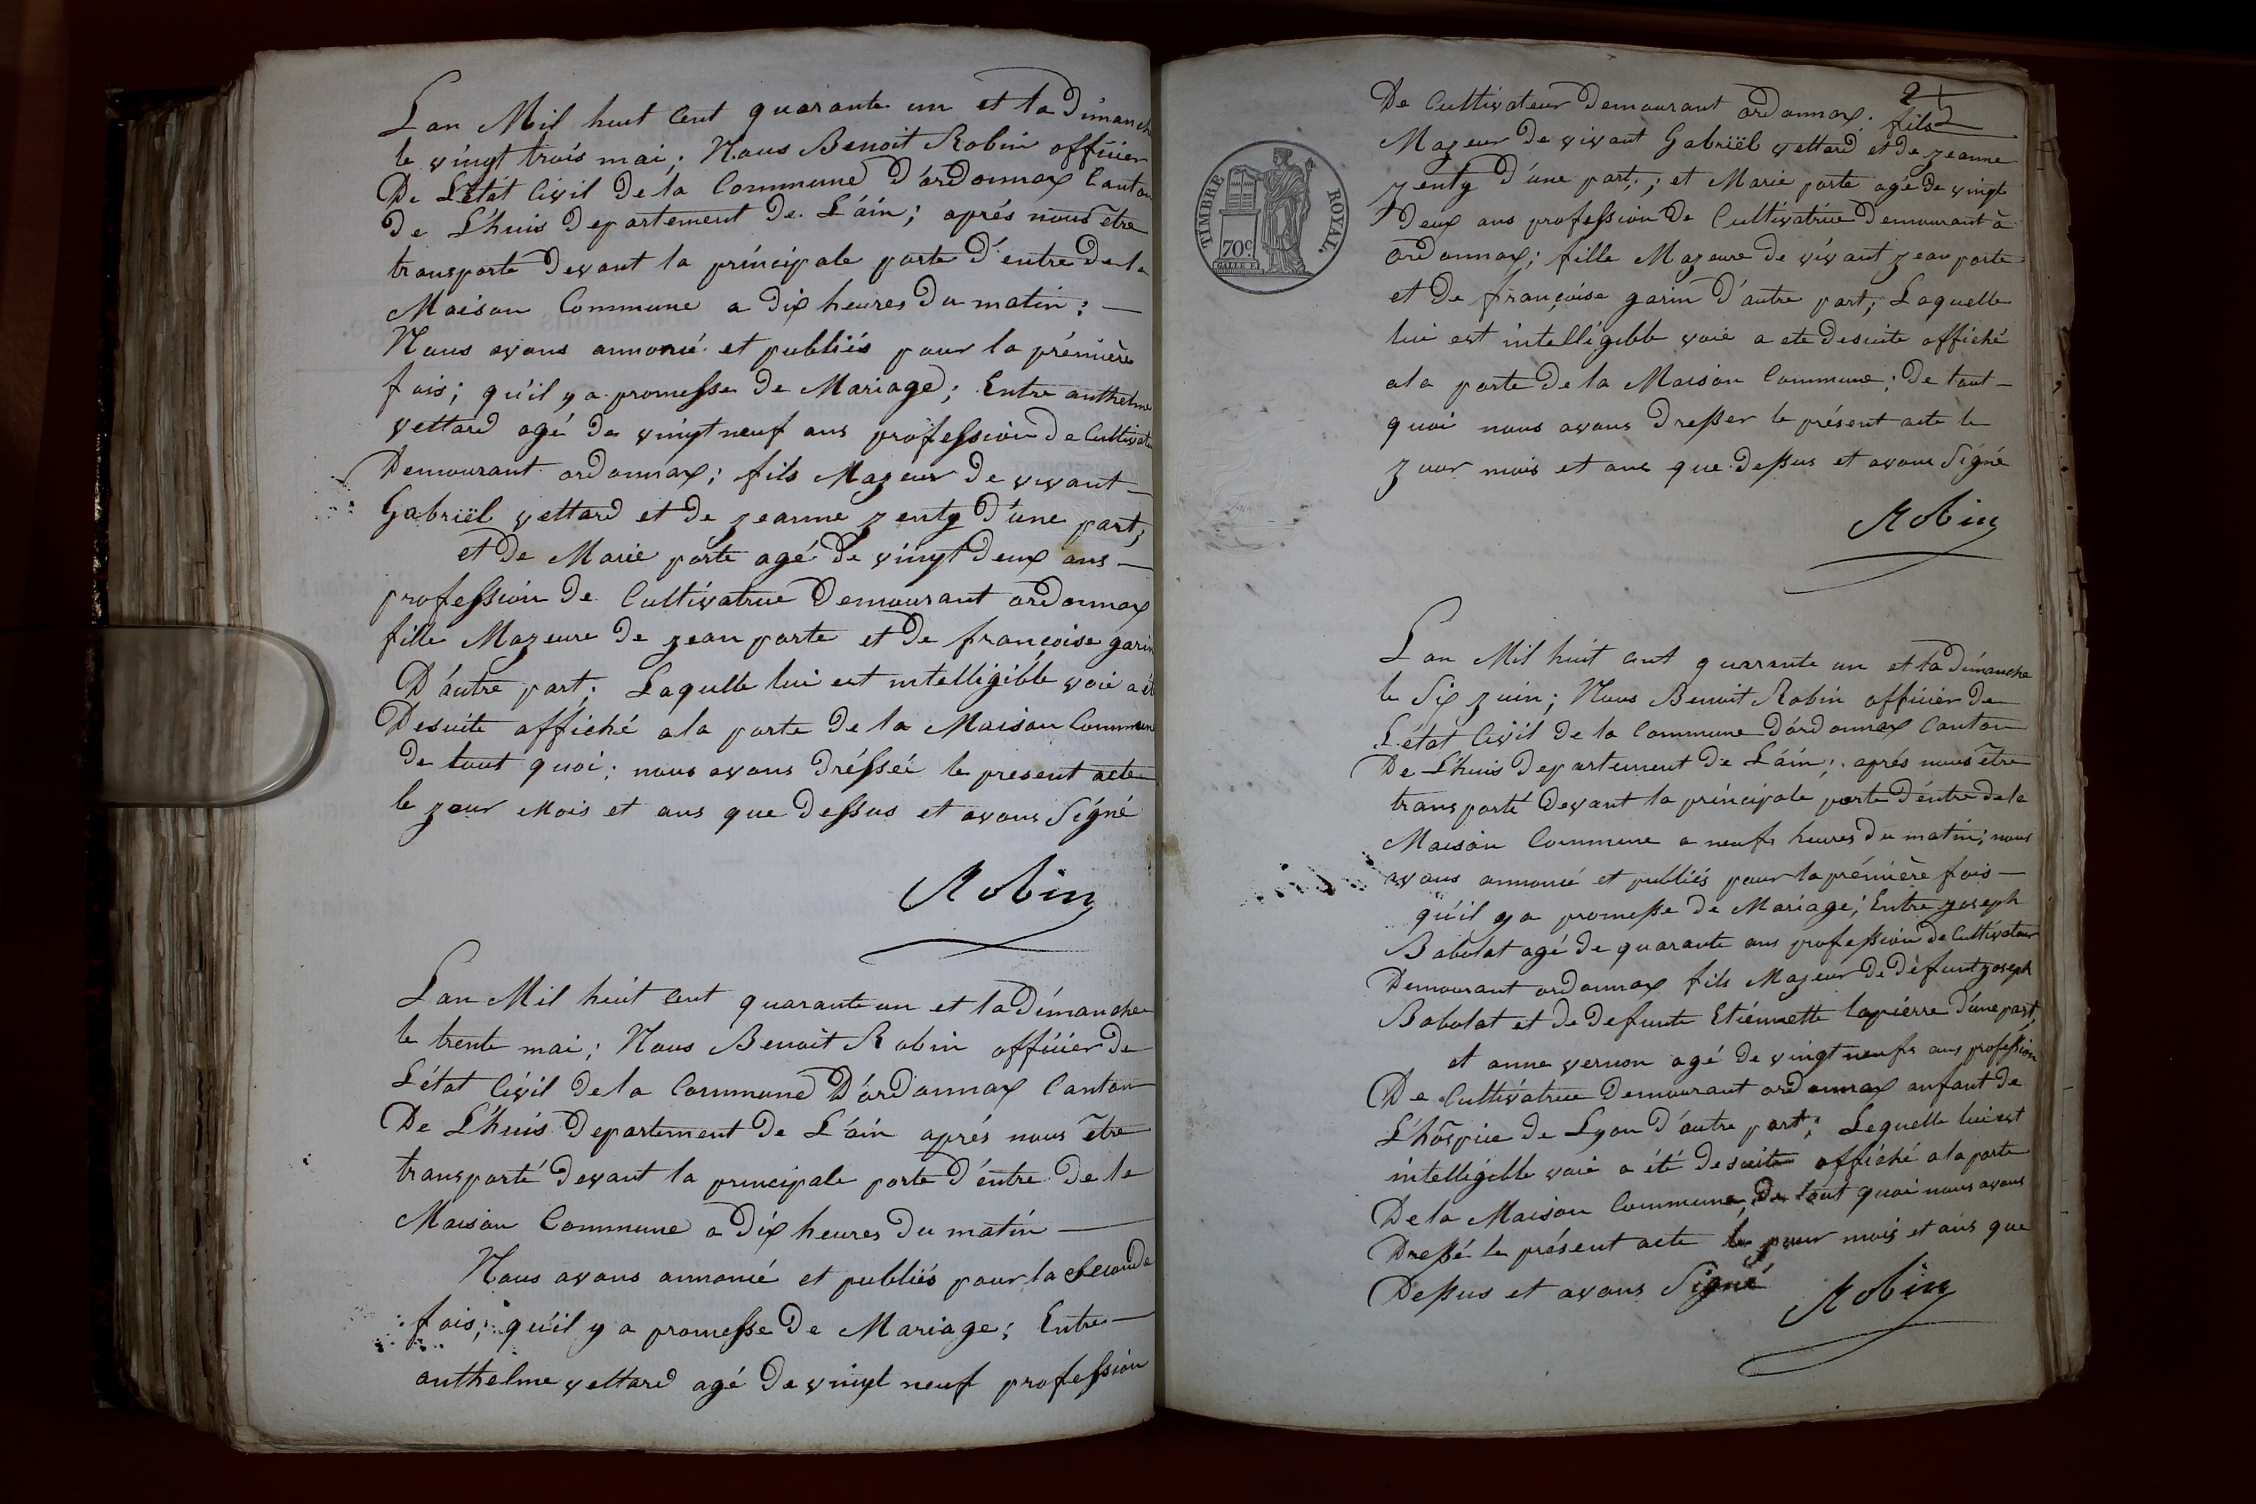 Lan Mil huit Cent quarante un et la Dimanch
le vingt trois mai; Nous Benoit Robin officier
De L'état Civil De la Commune D'ordonnax Canton
de L'huis Departement De L'ain; aprés nous être
transporte Devant la principale porte D'entre De la
Maison Commune a Dix heures Du matin; —
Nous avons annoncé et publiés pour la prémière
fois; qu'il y a promesse De Mariage; Entre anthelme
vettard agé de vingt neuf ans profession De Cultivate
Demourant ordonnax; fils Mazeur De vivant —
Gabriël vettard et De zeanne zenty D'une part;
et De Marie porte agé De vingt Deux ans —
profession De Cultivatrice Demourant ordonnax
fille Mazeure De zean porte et De françoise garin
D'autre part; Laquelle lui est intelligible voie a ét
Desuite affiché a la porte De la Maison Commune
De tout quoi; nous avons Drésseé le present acte
le zour Mois et ans que Dessus et avons Signé
Robin
Lan Mil huit Cent quarante un et la Dimanche
le trente mai; Nous Benoit Robin officier De
L'état Civil De la Commune D'ordonnax Canton
De L'huis Departement De L'ain aprés nous être
transporté Devant la principale porte D'entre De la
Maison Commune a Dix heures Du matin —
Nous avons annoncé et publiés pour la Seconde
fois; qu'il y a promesse De Mariage; Entre —
anthelme vettard agé De vingt neuf profession
2
De Cultivateur Demourant ordonnax; fils
Mazeur De vivant Gabriël vettard et De zeanne
zenty D'une part; et Marie porte agé De vingt
Deux ans profession De Cultivatrice Demourant à
ordonnax; fille Mazeure De vivant zean porte
et De françoise garin D'autre part; Laquelle
lui est intelligible voie a ete Desuite affiché
a la porte De la Maison Commune; De tout —
quoi nous avons Dresser le présent acte le
zour mois et ans que Dessus et avons Signé
TIMBRE ROYAL.
70c.
Robin
Lan Mil huit Cent quarante un et la Dimanche
le Six zuin; Nous Benoit Robin officier De
L'état Civil De la Commune D'ordonnax Canton
De L'huis Departement De L'ain; aprés nous être
transporté Devant la principale porte D'entre De la
Maison Commune a neufs heures Du matin; nous
avons annoncé et publiés pour la prémière fois —
qu'il y a promesse De Mariage; Entre zoseph
Babolat agé De quarante ans profession De Cultivateur
Demourant ordonnax fils Mazeur De Défunt zoseph
Babolat et De Defunte Etiennette lapierre D'une part;
et anne vernon agé De vingt neufs ans profession
De Cultivatrice Demourant ordonnax anfant De
L'hospice De Lyon D'autre part; Lequelle lui est
intelligible voie a été Desuite affiché a la porte
De la Maison Commune; De tout quoi nous avons
Dressé le présent acte le zour mois et ans que
Dessus et avons Signé
Robin